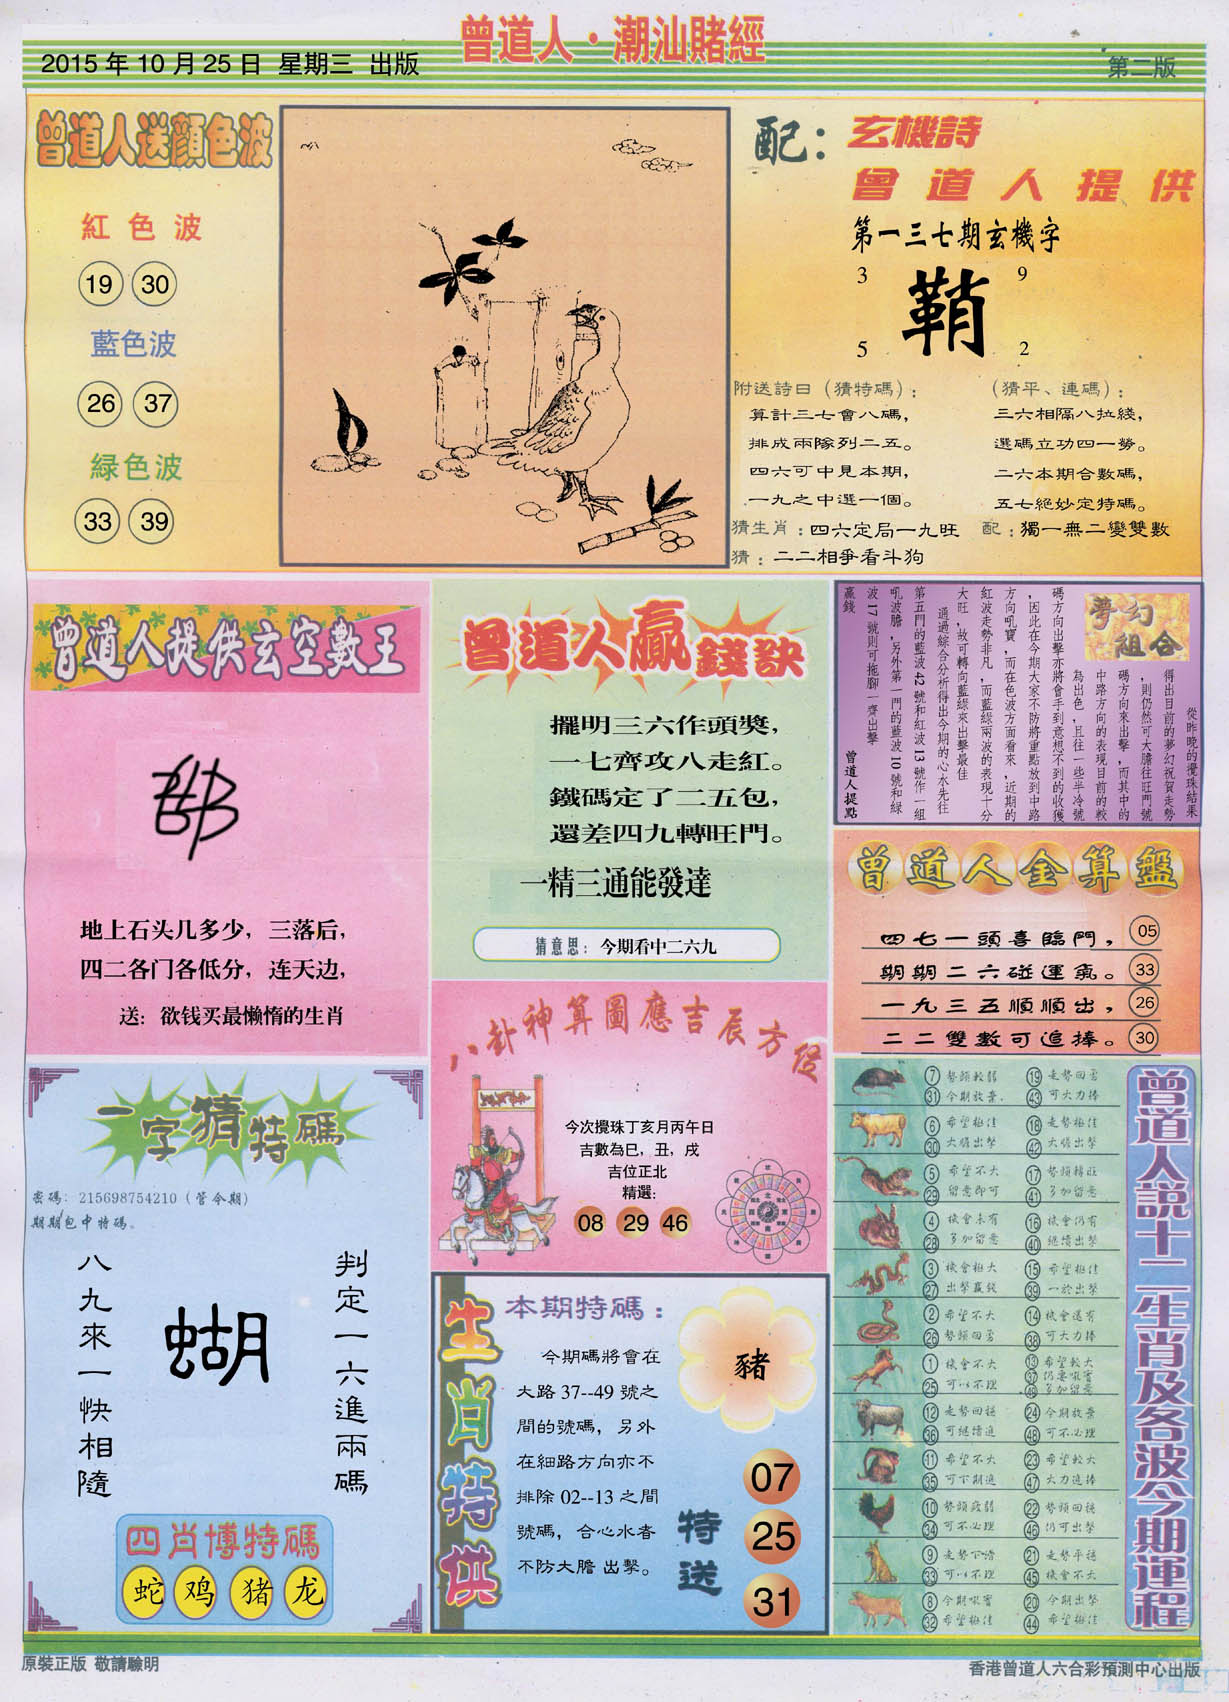 曾道人·潮汕賭經
2015年10月25日 星期三 出版
第二版
曾道人送顏色波
紅色波
19 30
藍色波
26 37
緑色波
33 39
配：玄機詩
曾道人提供
第一三七期玄機字
3 9
鞘
5 2
附送詩曰（猜特碼）：
算計三七會八碼，
排成兩隊列二五。
四六可中見本期，
一九之中選一個。
（猜平、連碼）：
三六相隔八拉綫，
選碼立功四一勞。
二六本期合數碼，
五七絕妙定特碼。
猜生肖：四六定局一九旺
配：獨一無二變雙數
猜：二二相爭看斗狗
曾道人提供玄空數王
地上石头几多少，三落后，
四二各门各低分，连天边，
送：欲钱买最懒惰的生肖
曾道人贏錢訣
擺明三六作頭獎，
一七齊攻八走紅。
鐵碼定了二五包，
還差四九轉旺門。
一精三通能發達
猜意思：今期看中二六九
夢幻組合
從昨晚的攪珠結果
得出目前的夢幻祝賀走勢
，則仍然可大膽往旺門號
碼方向來出擊，而其中的
中路方向的表現目前的較
為出色，且往一些半冷號
碼方向出擊亦將會手到意想不到的收獲
，因此在今期大家不防將重點放到中路
方向吼寶，而在色波方面看來，近期的
紅波走勢非凡，而藍綠兩波的表現十分
大旺，故可轉向藍綠來出擊最佳
通過綜合分析得出今期的心水先往
第五門的藍波42號和紅波13號作一組
吼波膽，另外第一門的藍波10號和綠
波17號則可拖腳一齊出擊
贏錢
曾道人提點
曾道人金算盤
四七一頭喜臨門， 05
期期二六碰運氣。 33
一九三五順順出， 26
二二雙數可追捧。 30
八卦神算圖應吉辰方位
今次攪珠丁亥月丙午日
吉數為巳，丑，戌
吉位正北
精選：
08 29 46
一字猜特碼
密碼：215698754210（管今期）
期期包中特碼。
判定一六進兩碼
蝴
八九來一快相隨
四肖博特碼
蛇 鸡 猪 龙
生肖特供
本期特碼：
今期碼將會在
大路37--49號之
間的號碼，另外
在細路方向亦不
排除02--13之間
號碼，合心水者
不防大膽出擊。
豬
特送
07
25
31
曾道人説十二生肖及各波今期運程
7 勢頭較弱 19 走勢回勇
31 今期放棄 43 可大力捧
6 希望極佳 18 走勢極佳
30 大膽出擊 42 大膽出擊
5 希望不大 17 勢頭轉旺
29 留意即可 41 多加留意
4 機會未有 16 機會仍有
28 多加留意 40 繼續出擊
3 機會極大 15 希望極佳
27 出擊贏錢 39 一於出擊
2 希望不大 14 機會還有
26 勢頭回勇 38 可大力捧
1 機會不大 13 希望較大
25 可以不理 37 仍要吼實
49 多加留意
12 走勢回穩 24 今期放棄
36 可繼續追 48 可不必理
11 希望不大 23 希望較大
35 可下期追 47 大力追捧
10 勢頭疲弱 22 勢頭回穩
34 可不必理 46 仍可出擊
9 走勢下滑 21 走勢平穩
33 可以不理 45 機會不大
8 今期吼實 20 今期出擊
32 希望極佳 44 希望極佳
原裝正版 敬請驗明
香港曾道人六合彩預測中心出版